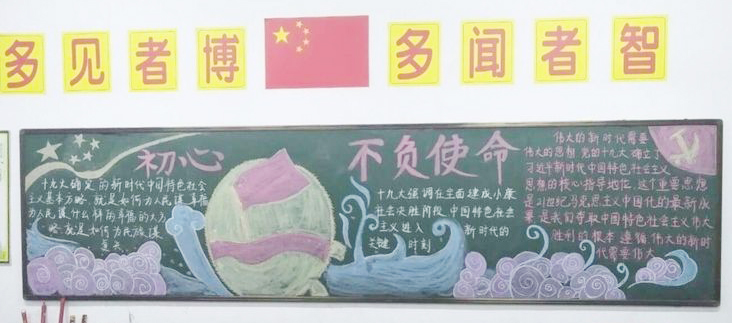 多见者博 多闻者智
初心 不负使命
十九大确定的新时代中国特色社会
主义基本方略 就是如何为人民谋幸福
为人民谋什么样的幸福的大方
略就是如何为民族谋
复兴
十九大强调在全面建成小康
社会决胜阶段 中国特色社会
主义进入 新时代的
关键 时刻
伟大的新时代需要
伟大的思想 党的十九大确立了
习近平新时代中国特色社会主义
思想的核心指导地位 这个重要思想
是21世纪马克思主义中国化的最新成
果 是我们夺取中国特色社会主义伟大
胜利的根本遵循 伟大的新时
代需要伟大